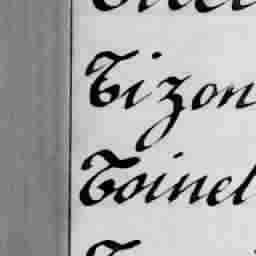 Tizon
Toinel